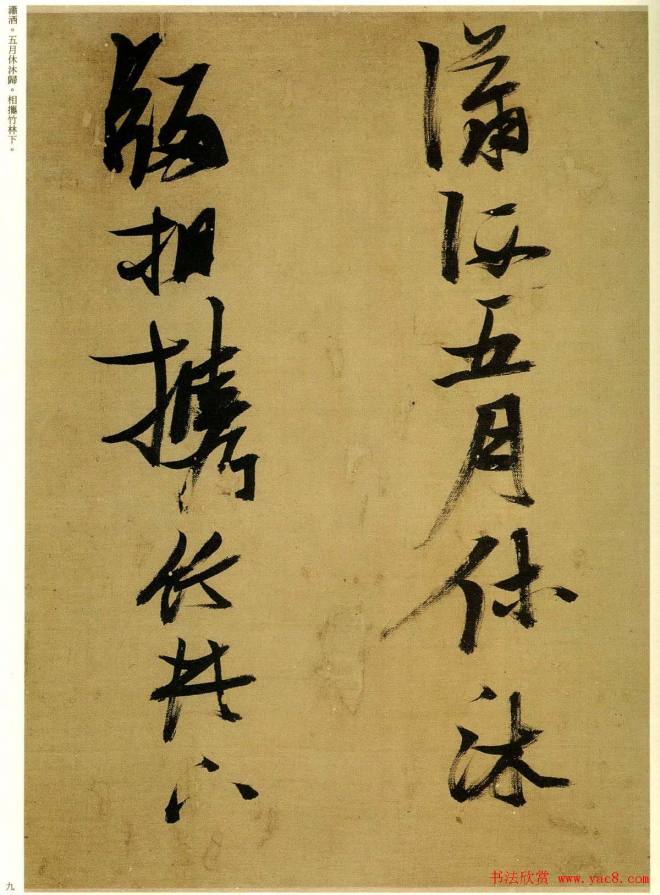 瀟洒五月休沐
歸相攜竹林下
瀟洒。五月休沐歸。相攜竹林下。
九
书法欣赏 www.yac8.com